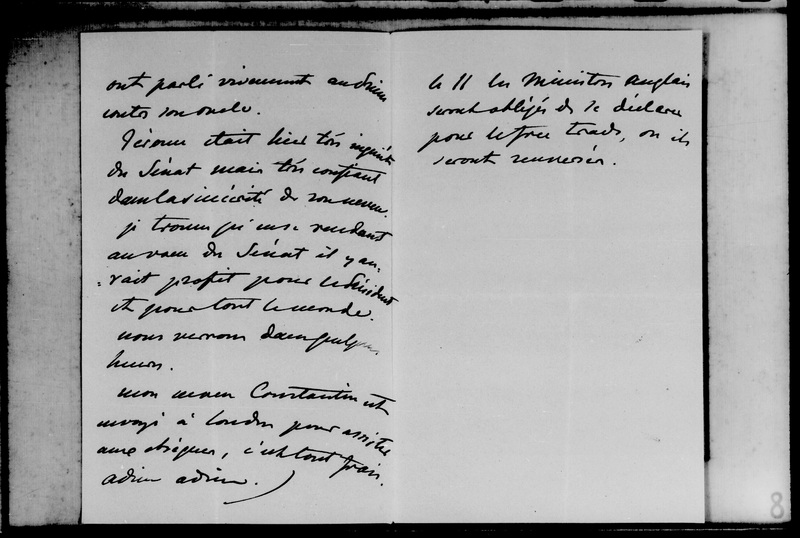 ont parlé vivement au Prince
contre son oncle.
Jérome était hier très inquiet
du Sénat mais très confiant
dans la sincérité de son neveu.
je trouve qu'en se rendant
au vœu du Sénat il y au-
-rait profit pour le Président
et pour tout le monde.
nous verrons dans quelques
heures.
mon neveu Constantin est
envoyé à Londres pour assister
aux obsèques, c'est tout frais.
adieu adieu.
le 11 les Ministres Anglais
seront obligés de se déclarer
pour le free trade, ou ils
seront renversés.
8